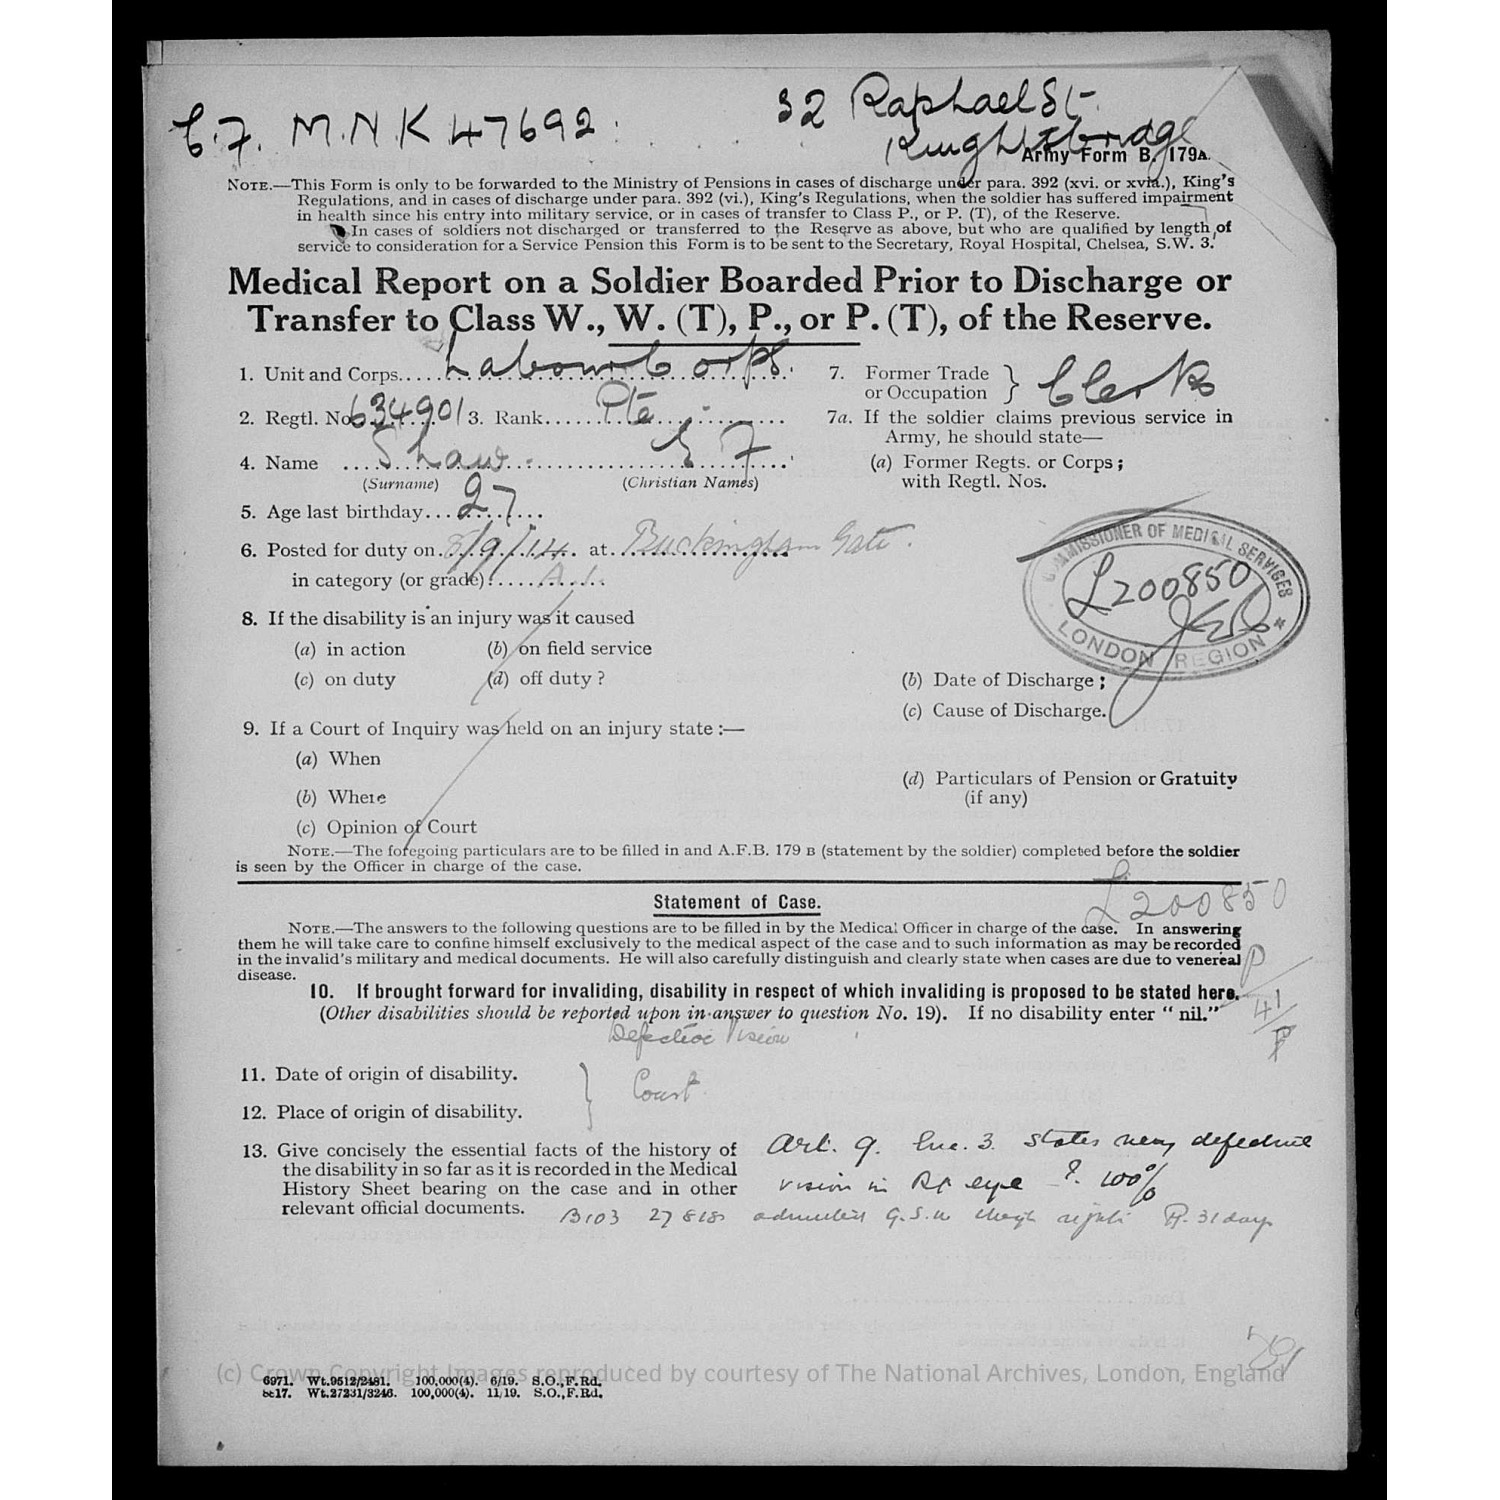 C.F. M.N.K 47692.
32 Raphael St.
Knightsbridge
Army Form B. 179A.
NOTE.—This Form is only to be forwarded to the Ministry of Pensions in cases of discharge under para. 392 (xvi. or xvia.), King's
Regulations, and in cases of discharge under para. 392 (vi.), King's Regulations, when the soldier has suffered impairment
in health since his entry into military service, or in cases of transfer to Class P., or P. (T), of the Reserve.
In cases of soldiers not discharged or transferred to the Reserve as above, but who are qualified by length of
service to consideration for a Service Pension this Form is to be sent to the Secretary, Royal Hospital, Chelsea, S.W. 3.
Medical Report on a Soldier Boarded Prior to Discharge or
Transfer to Class W., W. (T), P., or P. (T), of the Reserve.
1. Unit and Corps.....Labour Corps.
2. Regtl. No. 634901 3. Rank...... Pte ......
4. Name .... Shaw ........ E F ....
(Surname) (Christian Names)
5. Age last birthday... 27 ...
6. Posted for duty on 5/9/14 at Buckingham Gate.
in category (or grade) ..... A1 ...
7. Former Trade
or Occupation } Clerk
7a. If the soldier claims previous service in
Army, he should state—
(a) Former Regts. or Corps;
with Regtl. Nos.
COMMISSIONER OF MEDICAL SERVICES
L200850
LONDON REGION *
8. If the disability is an injury was it caused
(a) in action (b) on field service
(c) on duty (d) off duty?
(b) Date of Discharge;
(c) Cause of Discharge.
9. If a Court of Inquiry was held on an injury state :—
(a) When
(b) Where
(c) Opinion of Court
(d) Particulars of Pension or Gratuity
(if any)
NOTE.—The foregoing particulars are to be filled in and A.F.B. 179 B (statement by the soldier) completed before the soldier
is seen by the Officer in charge of the case.
L200850
Statement of Case.
NOTE.—The answers to the following questions are to be filled in by the Medical Officer in charge of the case. In answering
them he will take care to confine himself exclusively to the medical aspect of the case and to such information as may be recorded
in the invalid's military and medical documents. He will also carefully distinguish and clearly state when cases are due to venereal
disease.
P
41
10. If brought forward for invaliding, disability in respect of which invaliding is proposed to be stated here.
(Other disabilities should be reported upon in answer to question No. 19). If no disability enter " nil."
Defective Vision
11. Date of origin of disability.
12. Place of origin of disability.
13. Give concisely the essential facts of the history of
the disability in so far as it is recorded in the Medical
History Sheet bearing on the case and in other
relevant official documents.
Art. 9. states very defective
vision in Rt eye ?. 100%
B103 27 8 18 admitted G.S.W thigh right 31 days
(c) Crown Copyright Images reproduced by courtesy of The National Archives, London, England
6971. Wt.9512/2481. 100,000(4). 6/19. S.O.,F.Rd.
8c17. Wt.27231/3246. 100,000(4). 11/19. S.O.,F.Rd.